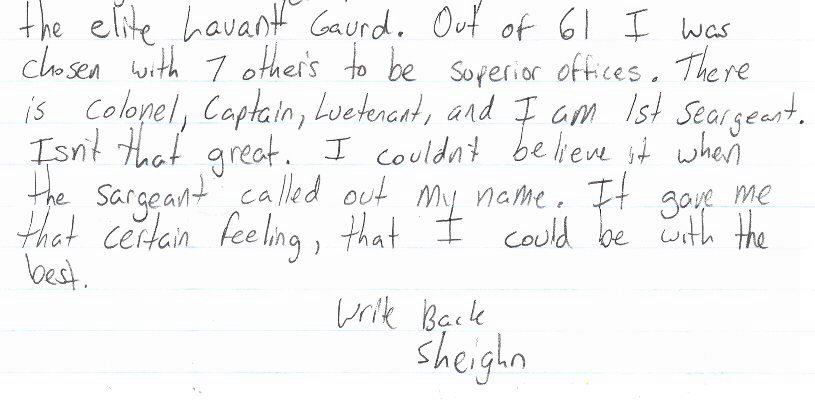 the elite Lavant Gaurd. Out of 61 I was
chosen with 7 other's to be superior offices. There
is colonel, Captain, Luetenant, and I am 1st Seargeant.
Isn't that great. I couldn't believe it when
the sargeant called out my name. It gave me
that certain feeling, that I could be with the
best.
Write Back
Sheighn